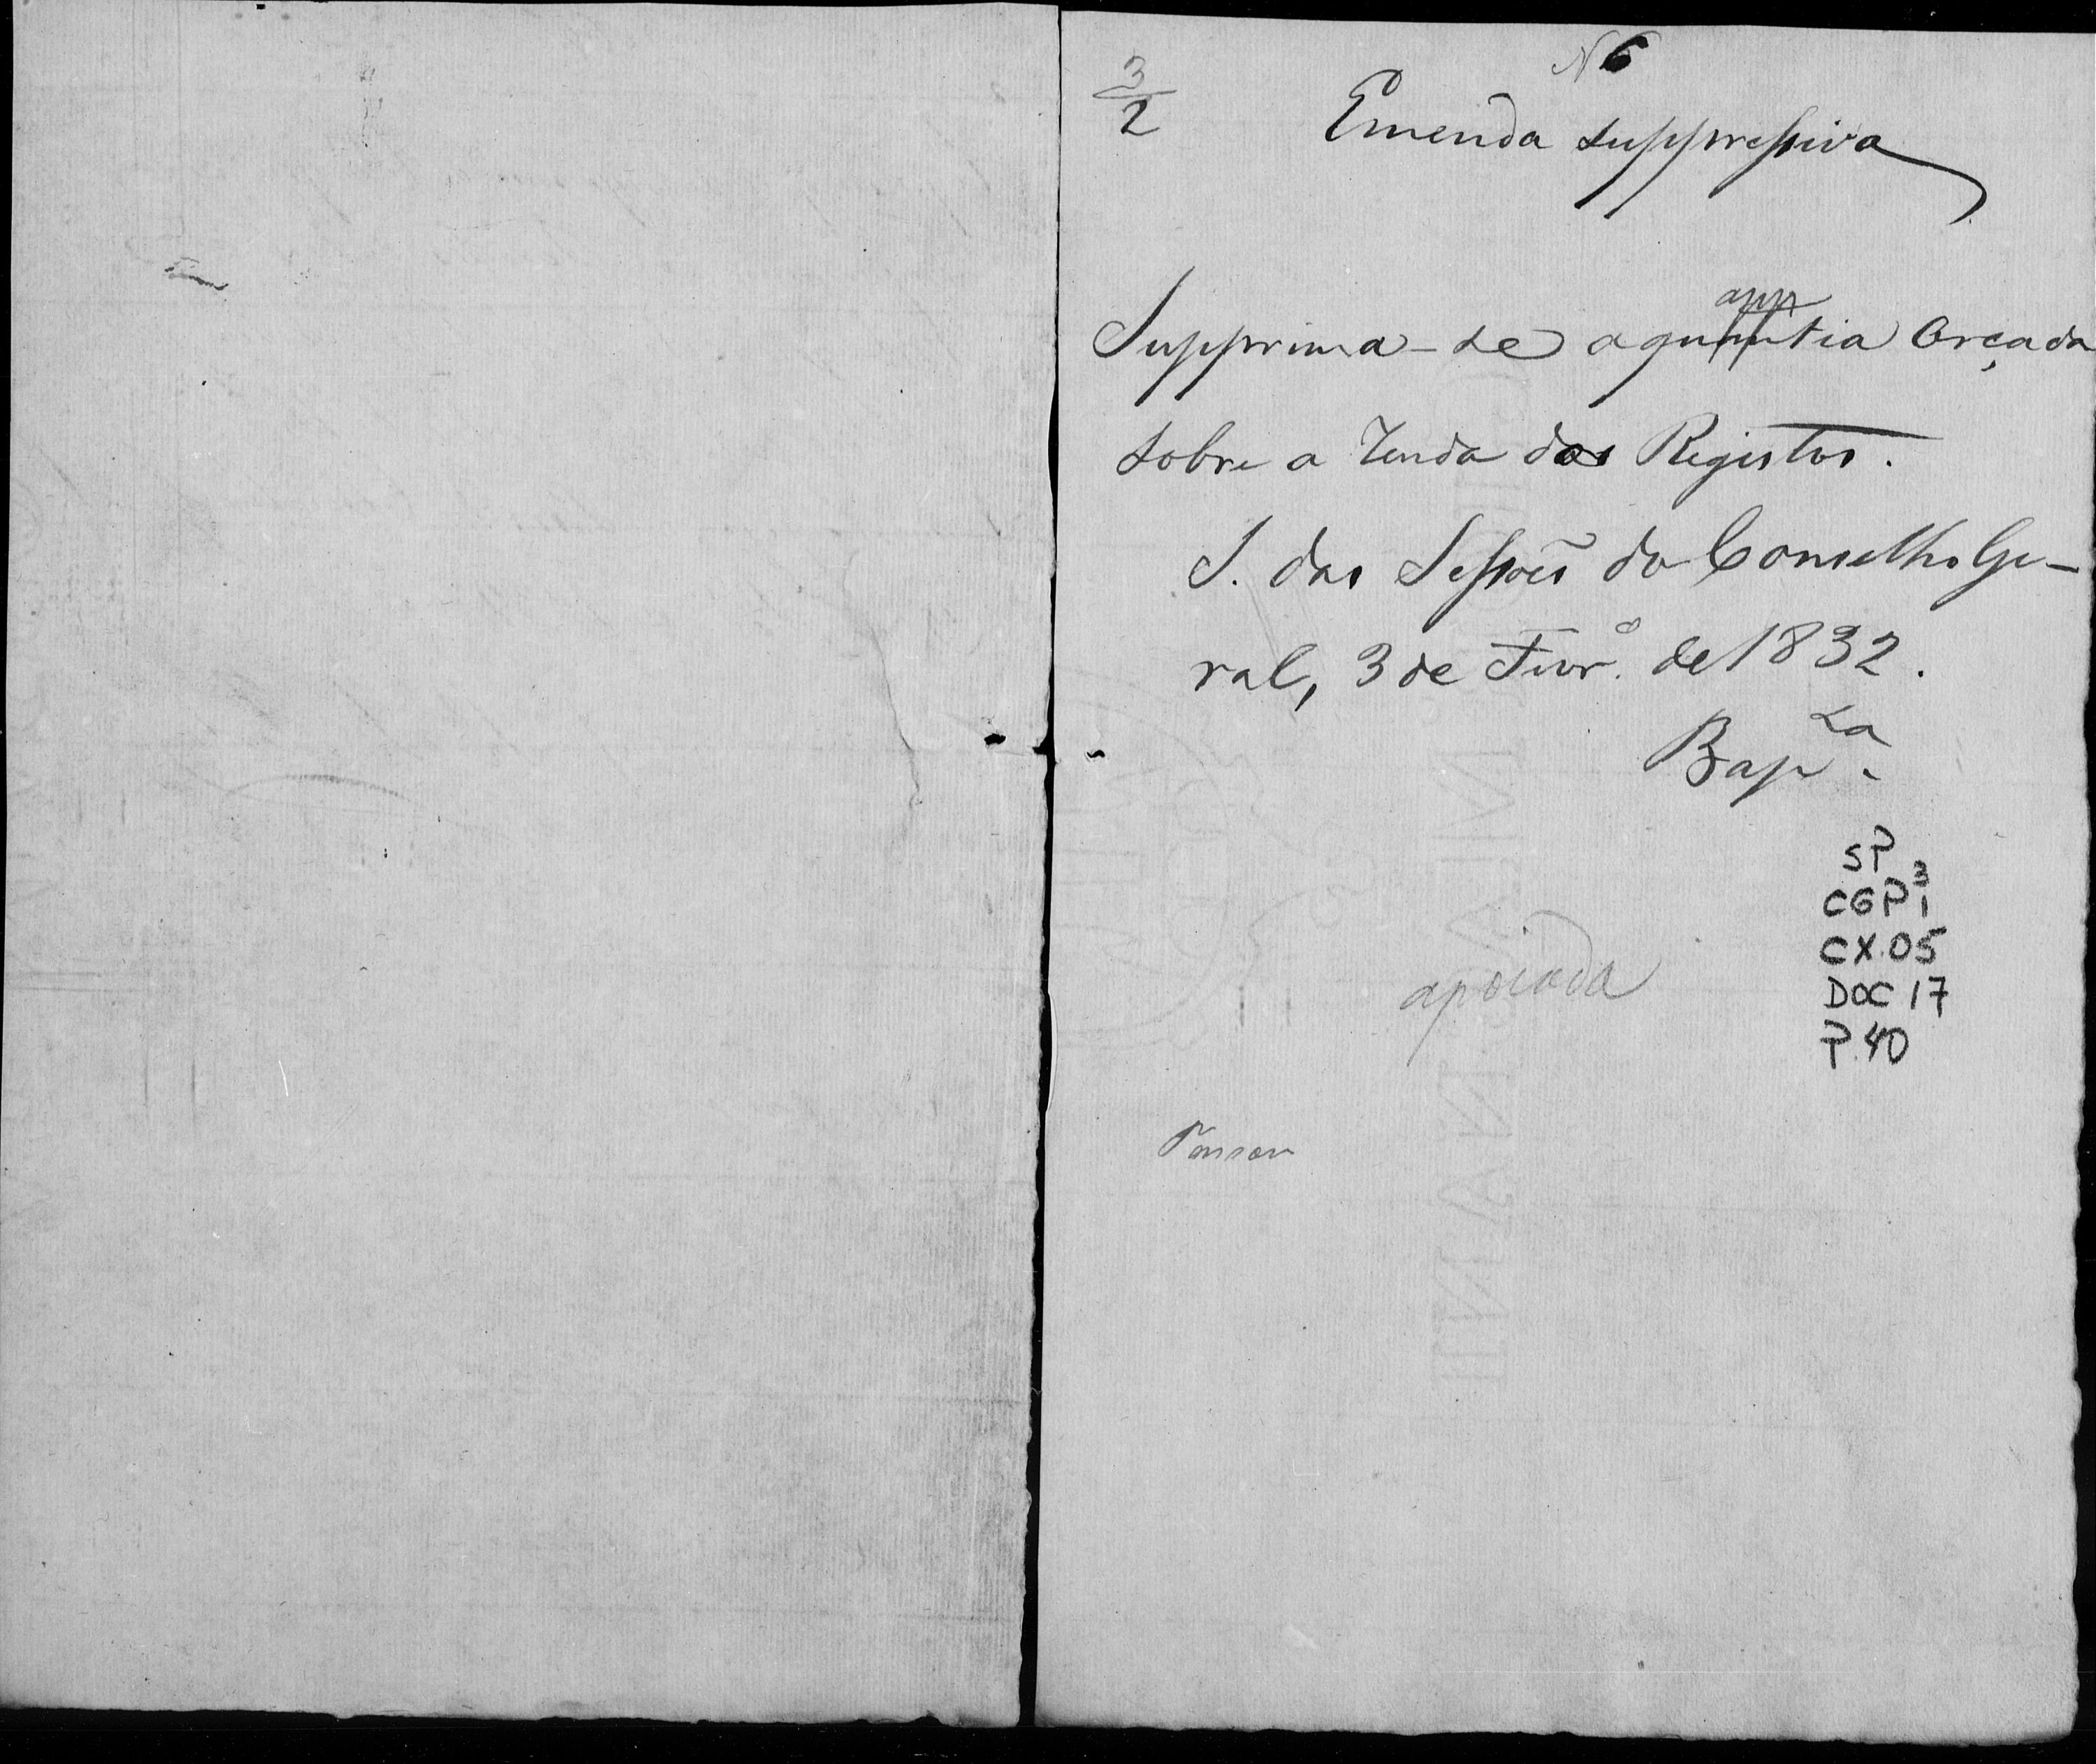 N 6
3/2
Emenda suppressiva
Supprima-se a quantia orçada
sobre a renda dos Registos.
S. das Sessões do Conselho Ge-
ral, 3 de Fevr.º de 1832.
Bap.ta
SP
CGP1 3
CX.05
DOC 17
P.40
apoiada